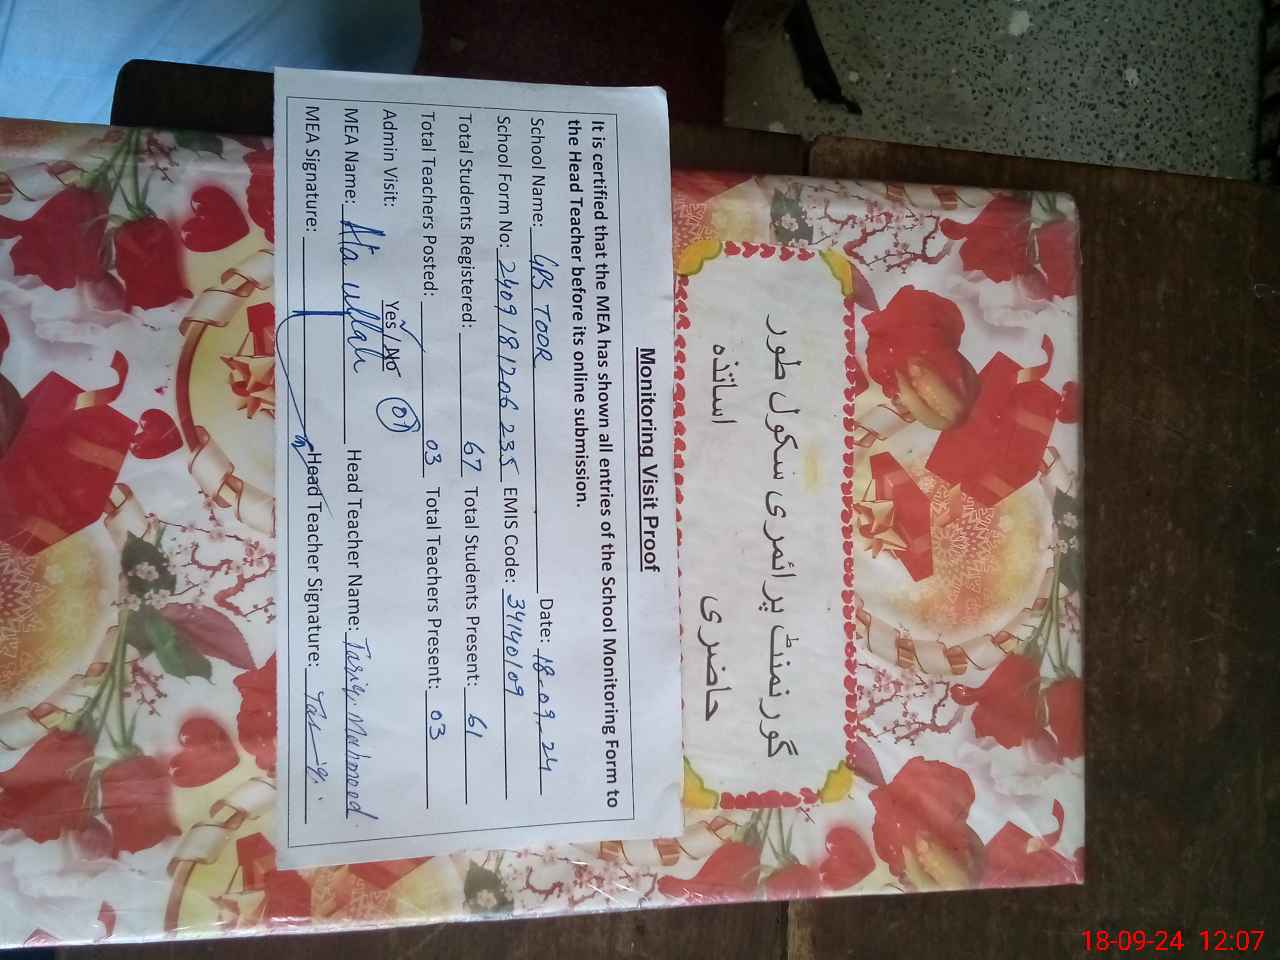 گورنمنٹ پرائمری سکول طور
اساتذہ حاضری
Monitoring Visit Proof
It is certified that the MEA has shown all entries of the School Monitoring Form to
the Head Teacher before its online submission.
School Name: GPS TOOR Date: 18-09-24
School Form No: 2409181206235 EMIS Code: 34140109
Total Students Registered: 67 Total Students Present: 61
Total Teachers Posted: 03 Total Teachers Present: 03
Admin Visit: Yes / No 01
MEA Name: Ata ullah Head Teacher Name: Tariq Mahmood
MEA Signature: Head Teacher Signature: Tariq
18-09-24 12:07